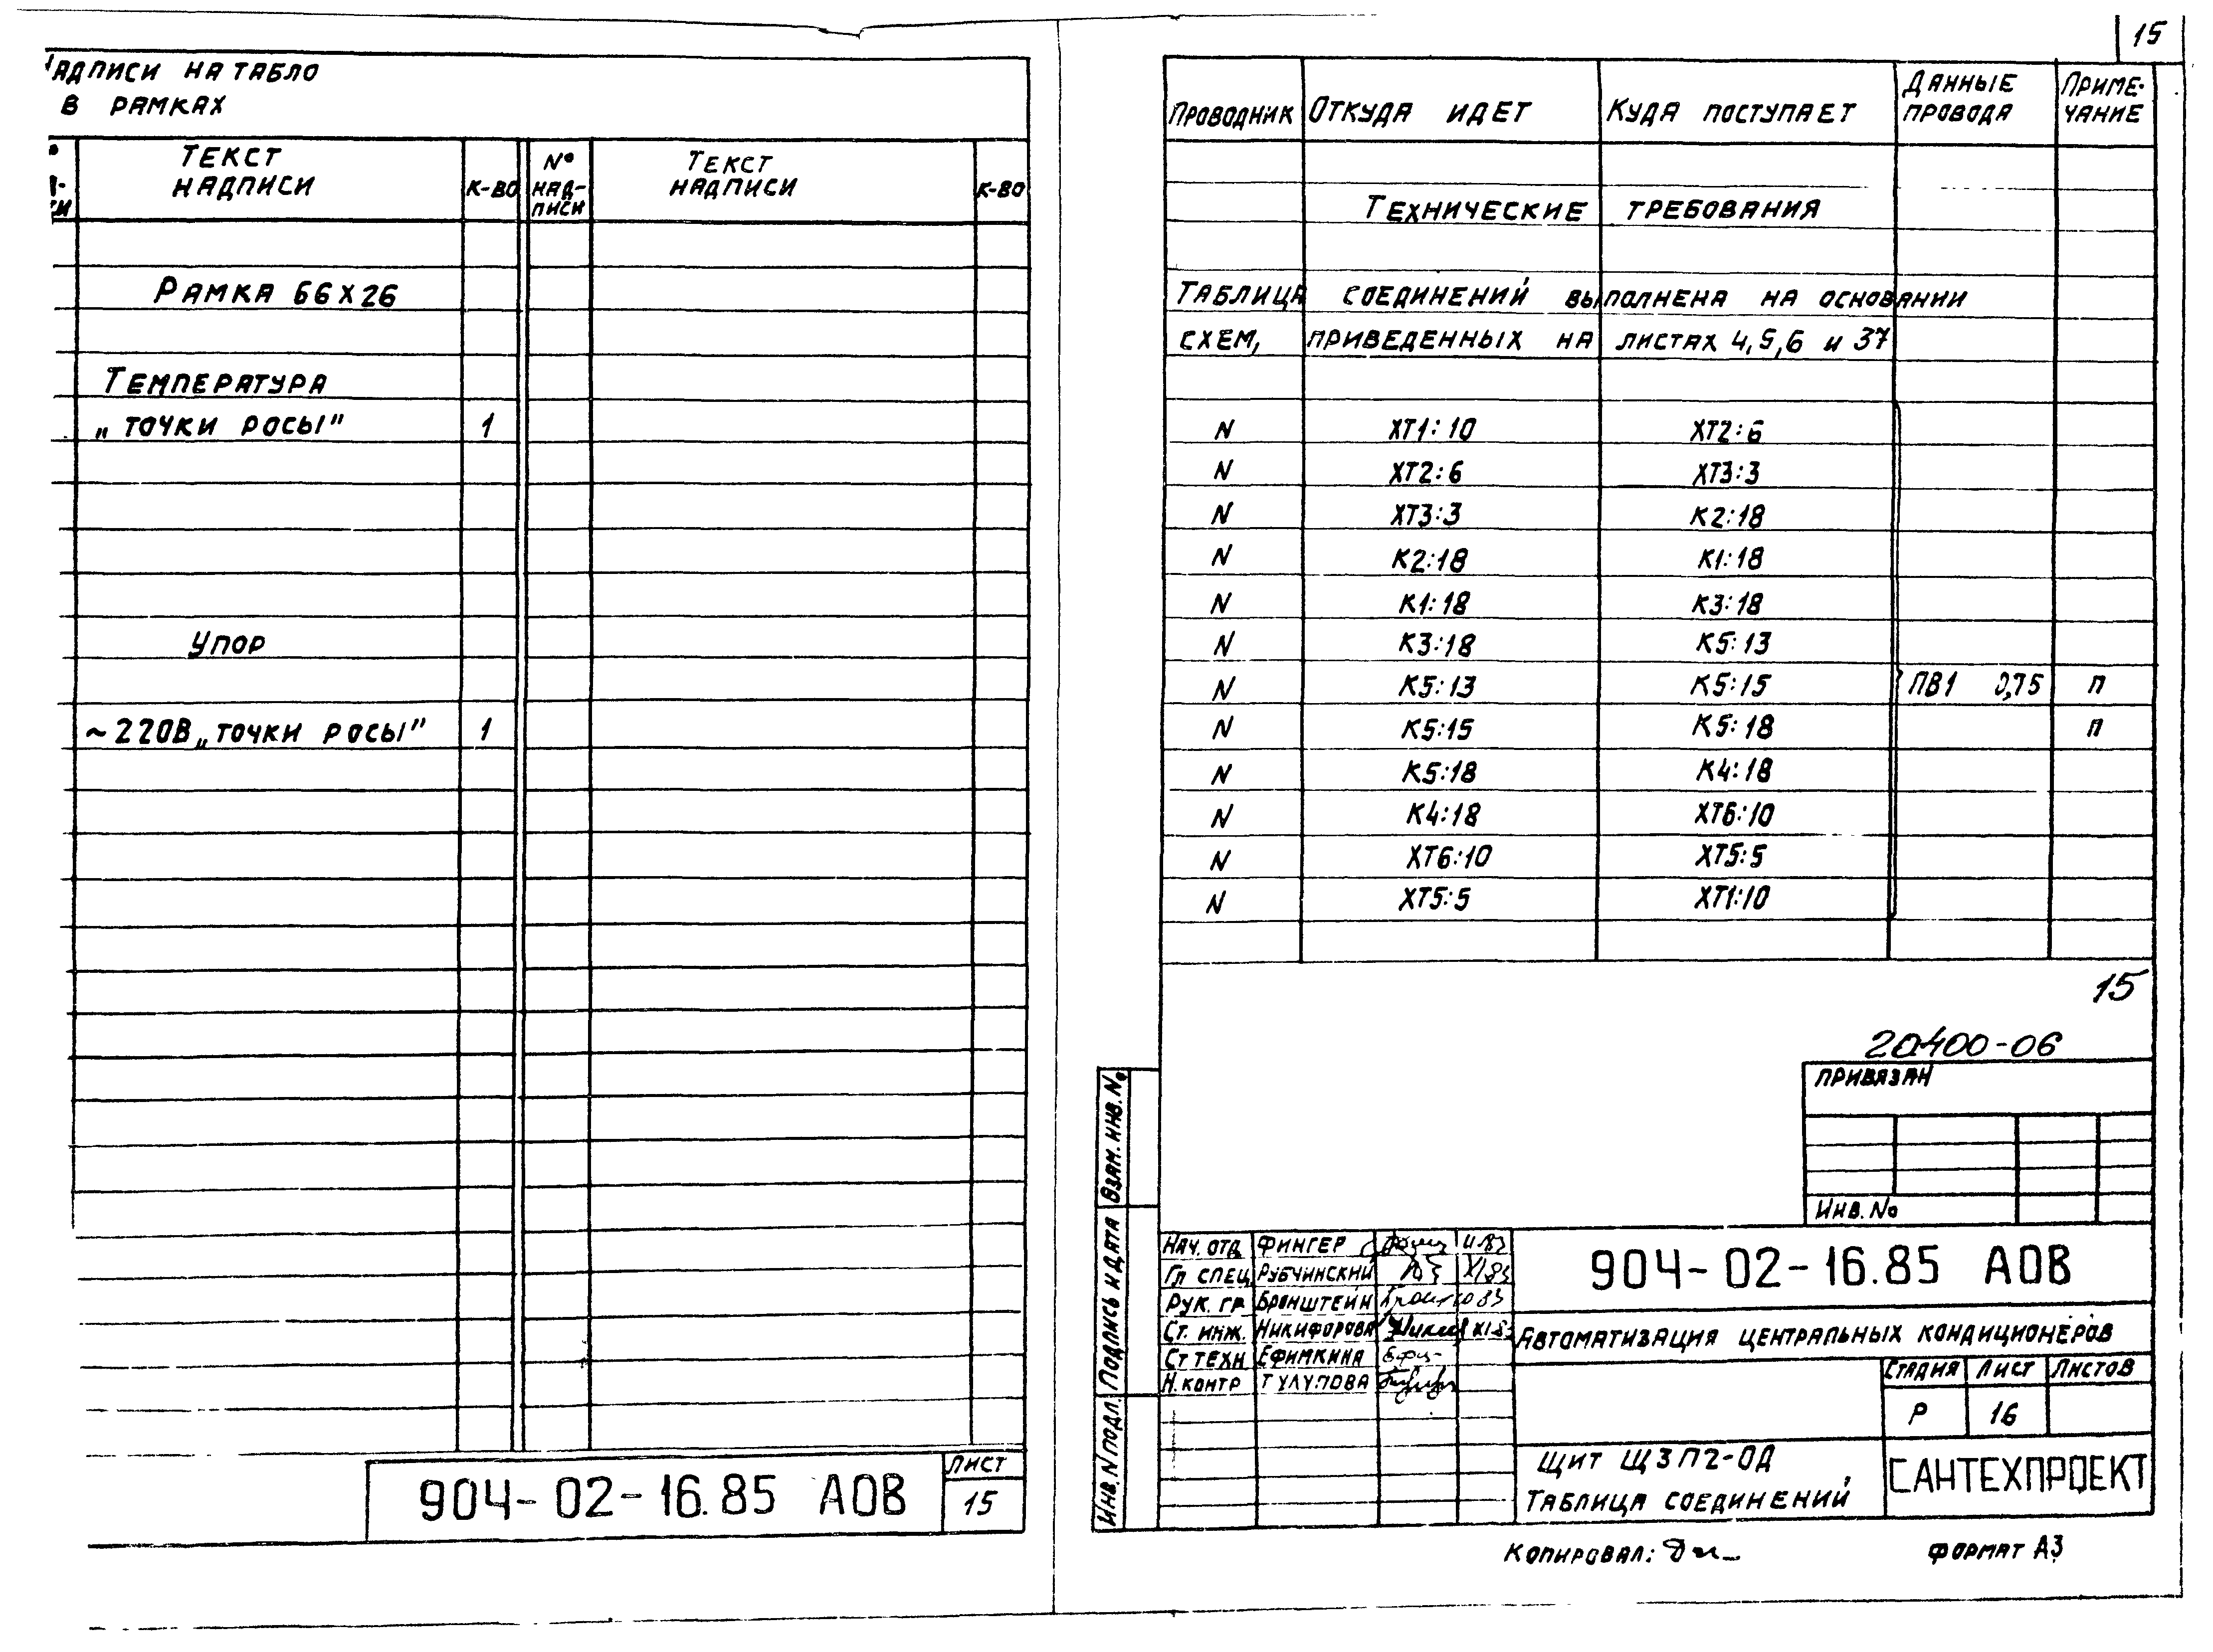 15
Надписи на табло
в рамках
Текст надписи
к-во
№ надписи
Текст надписи
к-во
Рамка 66х26
Температура
„точки росы"  1
Упор
~220В „точки росы"  1
904-02-16.85 АОВ
Лист
15
Проводник  Откуда идет  Куда поступает  Данные провода  Примечание
Технические требования
Таблица соединений выполнена на основании
схем, приведенных на листах 4,5,6 и 37
N  ХТ1:10  ХТ2:6
N  ХТ2:6  ХТ3:3
N  ХТ3:3  К2:18
N  К2:18  К1:18
N  К1:18  К3:18
N  К3:18  К5:13
N  К5:13  К5:15  ПВ1 0,75  п
N  К5:15  К5:18  п
N  К5:18  К4:18
N  К4:18  ХТ6:10
N  ХТ6:10  ХТ5:5
N  ХТ5:5  ХТ1:10
15
20400-06
Привязан
Инв. №
Взам. инв. №
Подпись и дата
Инв. N подл.
Нач. отд  Фингер
Гл спец  Рубчинский  XI83
Рук. гр  Бронштейн
Ст. инж.  Никифорова
Ст техн  Ефимкина
Н. контр  Тулупова
904-02-16.85 АОВ
Автоматизация центральных кондиционеров
Стадия  Лист  Листов
Р  16
Щит Щ3П2-ОД
Таблица соединений
САНТЕХПРОЕКТ
Копировал:
Формат А3